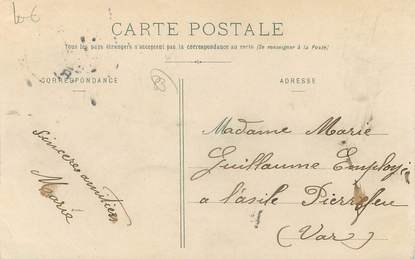 10€
CARTE POSTALE
Tous les pays étrangers n'acceptent pas la correspondance au recto (Se renseigner à la Poste)
CORRESPONDANCE
ADRESSE
Sincères amitiés
Marie
Madame Marie
Guillaume Employée
a l'asile Pierrefeu
(Var)